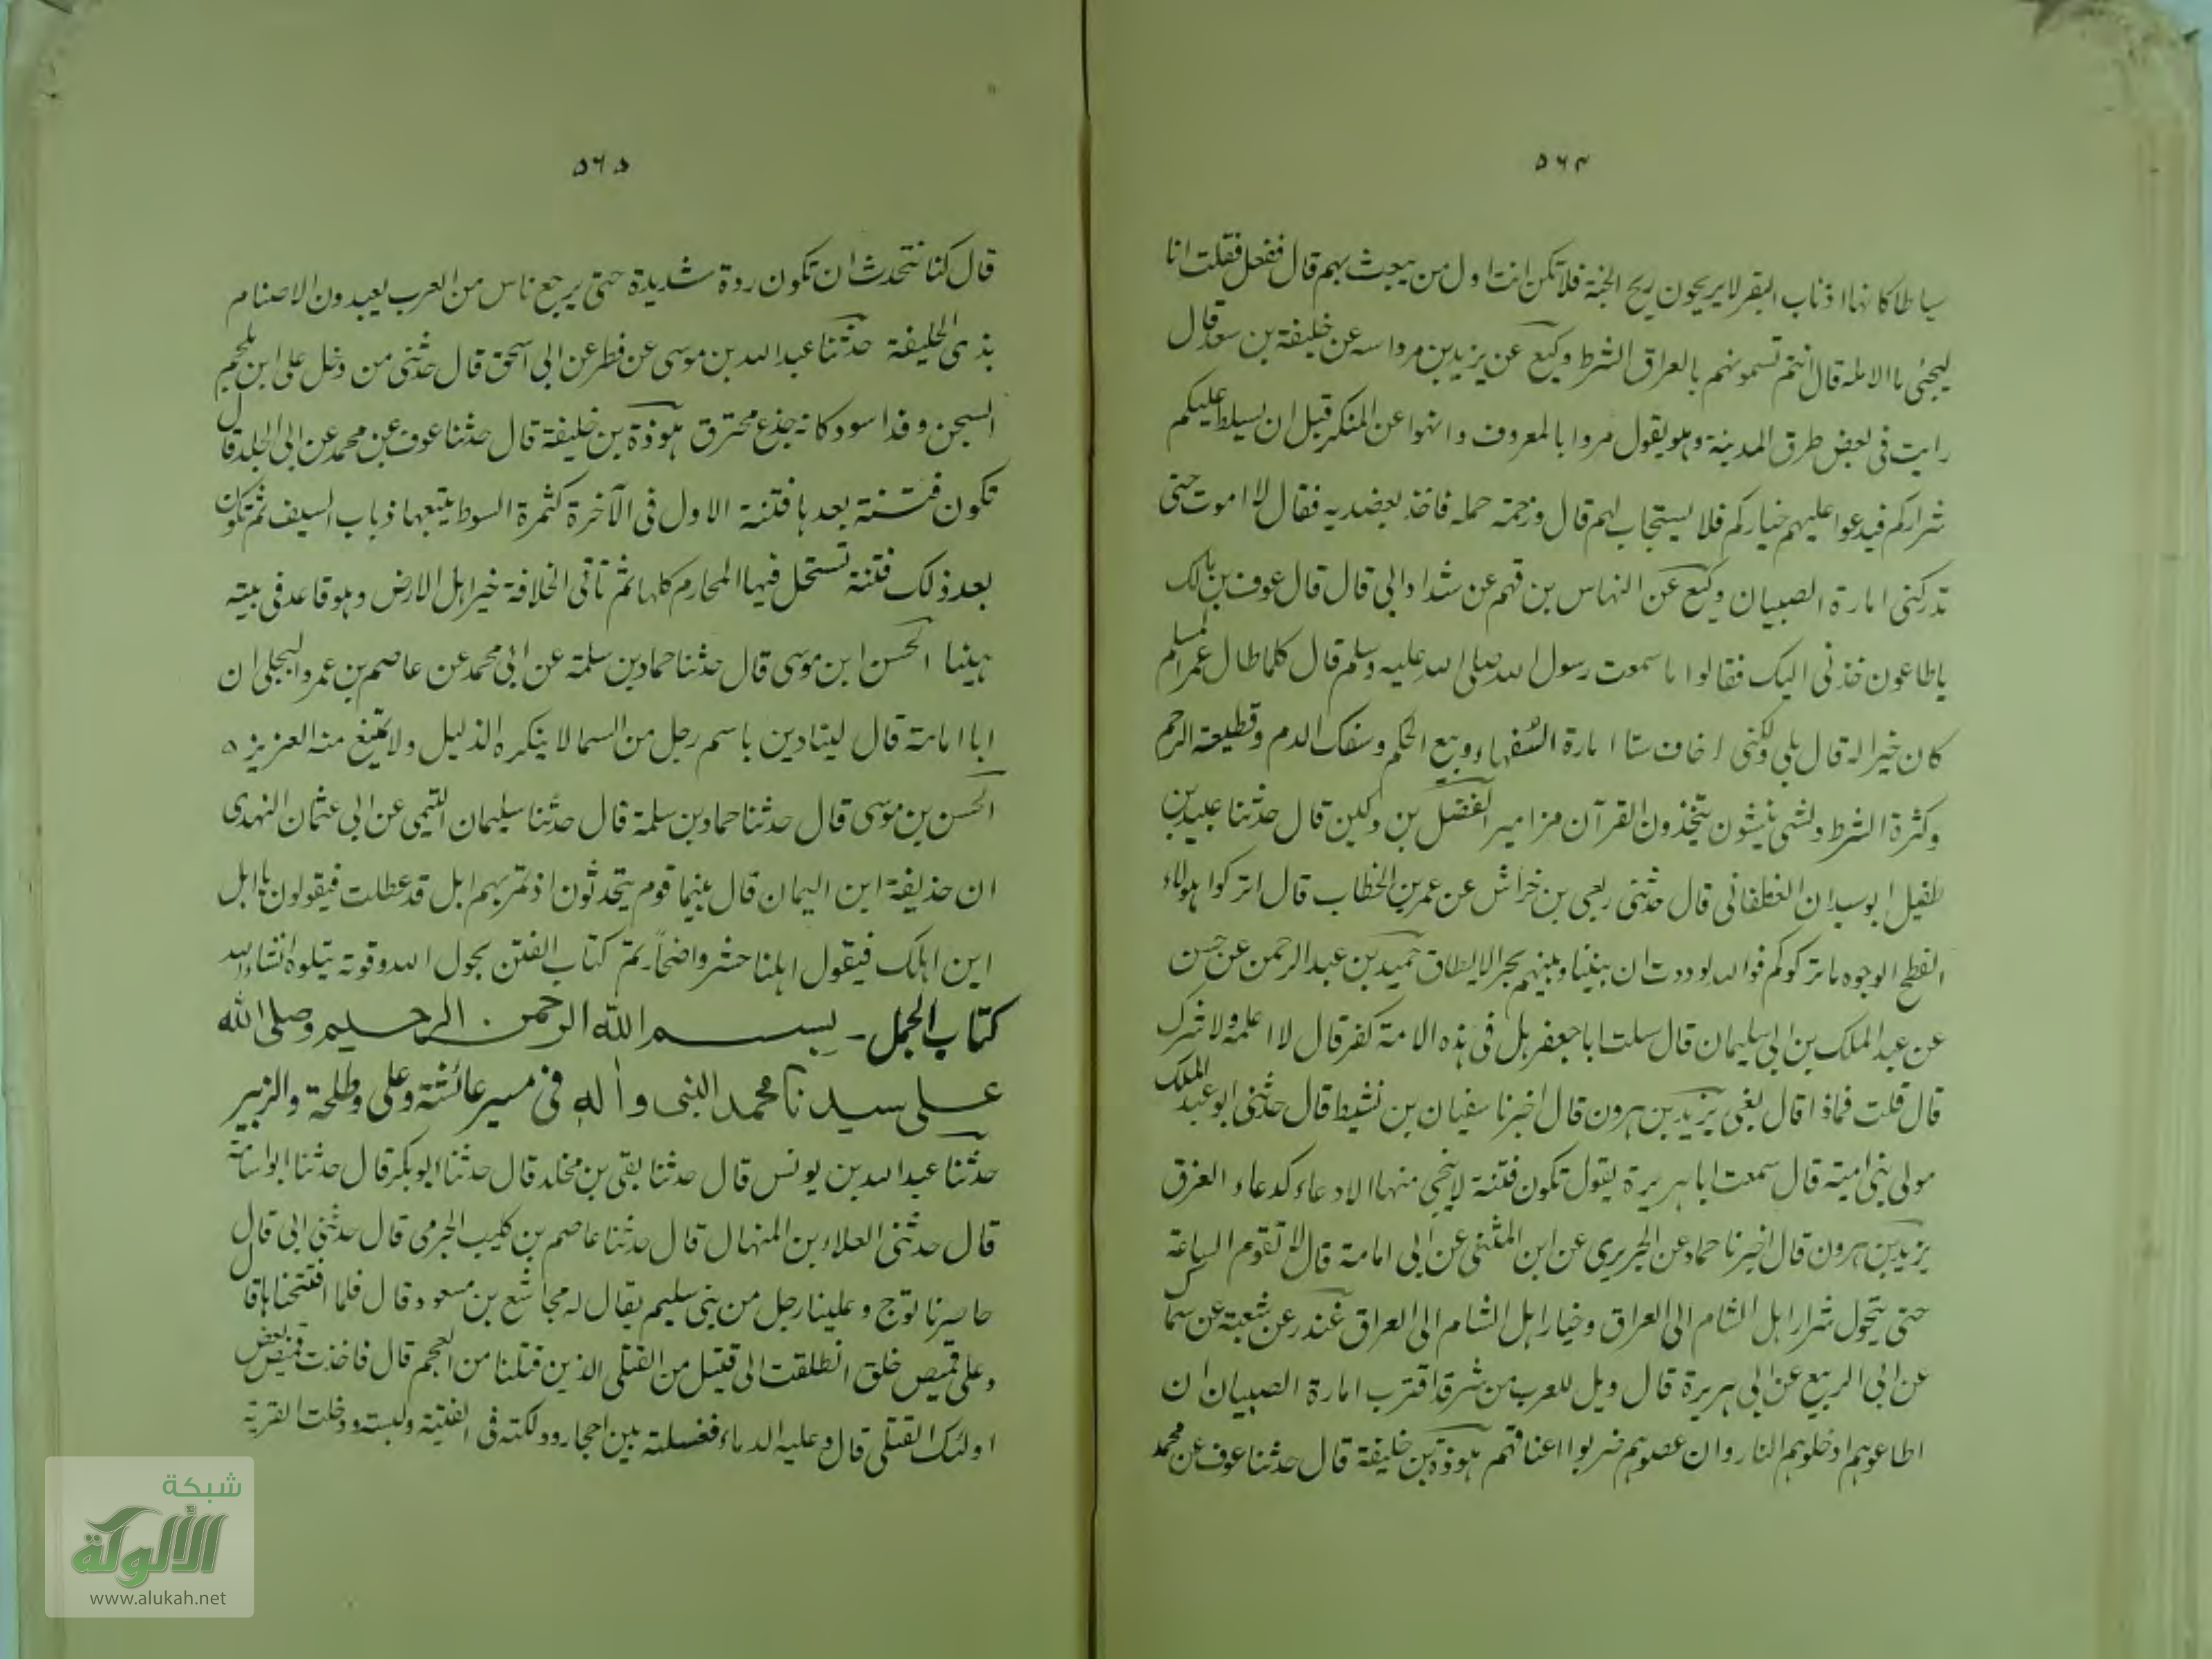 ٥٦٤
سياطا كانها اذناب البقر لا يريحون ريح الجنة فلا تكن انت اول من يبعث بهم قال ففعل فقلت انا
ليحيى ما الامله قال انتم تسمونهم بالعراق الشرط وكيع عن يزيد بن مردانبه عن خليفة بن سعد قال
رايت فى بعض طرق المدينة وهو يقول مروا بالمعروف وانهوا عن المنكر قبل ان يسلط عليكم
شراركم فيدعوا عليهم خياركم فلا يستجاب لهم قال وزحمته حمله فاخذ بعضديه فقال لا اموت حتى
تدركنى امارة الصبيان وكيع عن النهاس بن قهم عن شداد ابى قال قال عوف بن مالك
ياطاعون خذنى اليك فقالوا ما سمعت رسول الله صلى الله عليه وسلم قال كلما طال عمر المسلم
كان خيرا له قال بلى ولكنى اخاف ستا امارة السفهاء وبيع الحكم وسفك الدم وقطيعة الرحم
وكثرة الشرط ونشى ينشون يتخذون القرآن مزامير الفضل بن دكين قال حدثنا عبيد بن
طفيل ابو سيدان الغطفانى قال حدثنى ربعى بن خراش عن عمر بن الخطاب قال اتركوا هولاء
الفطح الوجوه ما تركوكم فوالله لوددت ان بيننا وبينهم بحرا لا يطاق حميد بن عبدالرحمن عن حسن
عن عبد الملك بن ابى سليمان قال سلت ابا جعفر هل فى هذه الامة كفر قال لا اعلمه ولا شرك
قال قلت فماذا قال بغى يزيد بن هرون قال اخبرنا سفيان بن نشيط قال حدثنى ابو عبد الملك
مولى بنى امية قال سمعت ابا هريرة يقول تكون فتنة لا ينجى منها الا دعاء كدعاء الغرق
يزيد بن هرون قال اخبرنا حماد عن الجريرى عن ابن المثنى عن ابى امامة قال لا تقوم الساعة
حتى يتحول شرار اهل الشام الى العراق وخيار اهل الشام الى العراق غندر عن شعبة عن سماك
عن ابى الربيع عن ابى هريرة قال ويل للعرب من شر قد اقترب امارة الصبيان ان
اطاعوهم ادخلوهم النار وان عصوهم ضربوا اعناقهم هوذة بن خليفة قال حدثنا عوف عن محمد
٥٦٥
قال كنا نتحدث ان تكون ردة شديدة حتى يرجع ناس من العرب يعبدون الاصنام
بذى الحليفة حدثنا عبد الله بن موسى عن فطر عن ابى اسحق قال حدثنى من دخل على ابن ملجم
السجن وقد اسود كانه جذع محترق هوذة بن خليفة قال حدثنا عوف عن محمد عن ابى الجلد قال
تكون فتنة بعدها فتنة الاول فى الآخرة كثمرة السوط يتبعها ذباب السيف ثم تكون
بعد ذلك فتنة تستحل فيها المحارم كلها ثم تأتى الخلافة خير اهل الارض وهو قاعد فى بيته
هينا الحسن ابن موسى قال حدثنا حماد بن سلمة عن ابى محمد عن عاصم بن عمرو البجلى ان
ابا امامة قال لينادين باسم رجل من السما لا ينكره الذليل ولا يمتنع منه العزيز ٥
الحسن بن موسى قال حدثنا حماد بن سلمة قال حدثنا سليمان التيمى عن ابى عثمان النهدى
ان حذيفة ابن اليمان قال بينما قوم يتحدثون اذ تمر بهم ابل قد عطلت فيقولون يا ابل
اين اهلك فيقول اهلنا حشروا ضحاً۔ تم كتاب الفتن بحول الله وقوته يتلوه انشاء الله
كتاب الجمل۔ بسم الله الرحمن الرحيم وصلى الله
على سيدنا محمد النبى وآله فى مسير عائشة وعلى وطلحة والزبير
حدثنا عبد الله بن يونس قال حدثنا بقى بن مخلد قال حدثنا ابو بكر قال حدثنا ابو اسامة
قال حدثنى العلاء بن المنهال قال حدثنا عاصم بن كليب الجرمى قال حدثنى ابى قال
حاصرنا توج وعلينا رجل من بنى سليم يقال له مجاشع بن مسعود قال فلما افتتحناها قال
وعلى قميص خلق انطلقت الى قتيل من القتلى الذين قتلنا من العجم قال فاخذت قميص بعض
اولئك القتلى قال وعليه الدماء فغسلته بين احجار ودلكته فى الفتية ولبسته ودخلت القرية
شبكة
الألوكة
www.alukah.net